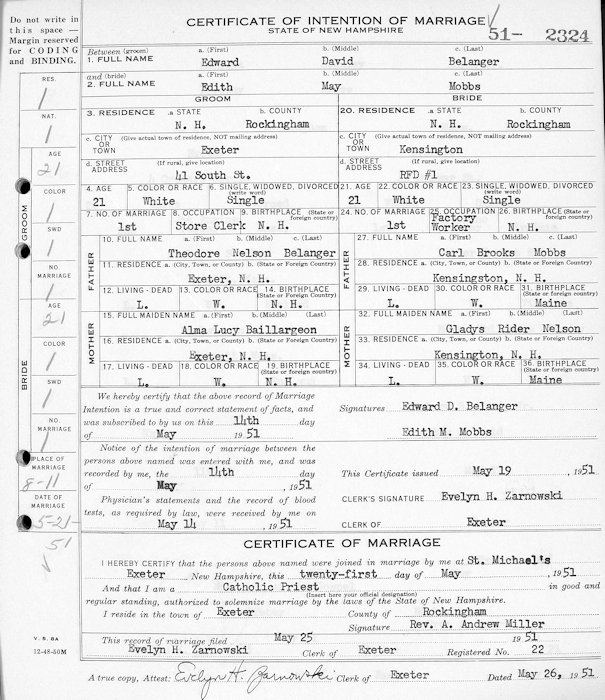 Do not write in
this space —
Margin reserved
for CODING
and BINDING.
CERTIFICATE OF INTENTION OF MARRIAGE
STATE OF NEW HAMPSHIRE
51- 2324
Between (groom) a. (First) b. (Middle) c. (Last)
1. FULL NAME Edward David Belanger
and (bride) a. (First) b. (Middle) c. (Last)
2. FULL NAME Edith May Mobbs
GROOM BRIDE
3. RESIDENCE a. STATE b. COUNTY 20. RESIDENCE a. STATE b. COUNTY
N. H. Rockingham N. H. Rockingham
c. CITY OR TOWN (Give actual town of residence, NOT mailing address) c. CITY OR TOWN (Give actual town of residence, NOT mailing address)
Exeter Kensington
d. STREET ADDRESS (If rural, give location) d. STREET ADDRESS (If rural, give location)
41 South St. RFD #1
4. AGE 5. COLOR OR RACE 6. SINGLE, WIDOWED, DIVORCED (write word) 21. AGE 22. COLOR OR RACE 23. SINGLE, WIDOWED, DIVORCED (write word)
21 White Single 21 White Single
7. NO. OF MARRIAGE 8. OCCUPATION 9. BIRTHPLACE (State or foreign country) 24. NO. OF MARRIAGE 25. OCCUPATION 26. BIRTHPLACE (State or foreign country)
1st Store Clerk N. H. 1st Factory Worker N. H.
FATHER FATHER
10. FULL NAME a. (First) b. (Middle) c. (Last) 27. FULL NAME a. (First) b. (Middle) c. (Last)
Theodore Nelson Belanger Carl Brooks Mobbs
11. RESIDENCE a. (City, Town, or County) b. (State or Foreign Country) 28. RESIDENCE a. (City, Town, or County) b. (State or Foreign Country)
Exeter, N. H. Kensingston, N. H.
12. LIVING - DEAD 13. COLOR OR RACE 14. BIRTHPLACE (State or Foreign Country) 29. LIVING - DEAD 30. COLOR OR RACE 31. BIRTHPLACE (State or Foreign Country)
L. W. N. H. L. W. Maine
MOTHER MOTHER
15. FULL MAIDEN NAME a. (First) b. (Middle) (Last) 32. FULL MAIDEN NAME a. (First) b. (Middle) (Last)
Alma Lucy Baillargeon Gladys Rider Nelson
16. RESIDENCE a. (City, Town, or County) b. (State or Foreign Country) 33. RESIDENCE a. (City, Town, or County) b. (State or Foreign Country)
Exeter, N. H. Kensington, N. H.
17. LIVING - DEAD 18. COLOR OR RACE 19. BIRTHPLACE (State or foreign country) 34. LIVING - DEAD 35. COLOR OR RACE 36. BIRTHPLACE (State or foreign country)
L. W. N. H. L. W. Maine
We hereby certify that the above record of Marriage
Intention is a true and correct statement of facts, and
was subscribed to by us on this 14th day
of May 1951
Signatures Edward D. Belanger
Edith M. Mobbs
Notice of the intention of marriage between the
persons above named was entered with me, and was
recorded by me, the 14th day
of May , 1951
Physician's statements and the record of blood
tests, as required by law, were received by me on
May 14 , 1951
This Certificate issued May 19 , 1951
CLERK'S SIGNATURE Evelyn H. Zarnowski
CLERK OF Exeter
CERTIFICATE OF MARRIAGE
I HEREBY CERTIFY that the persons above named were joined in marriage by me at St. Michael's
Exeter New Hampshire, this twenty-first day of May , 1951
And that I am a Catholic Priest in good and
(Insert here your official designation)
regular standing, authorized to solemnize marriage by the laws of the State of New Hampshire.
I reside in the town of Exeter County of Rockingham
Signature Rev. A. Andrew Miller
This record of marriage filed May 25 1951
Evelyn H. Zarnowski Clerk of Exeter Registered No. 22
A true copy, Attest: Evelyn H. Zarnowski Clerk of Exeter Dated May 26, 1951
RES.
1
NAT.
1
GROOM
AGE
21
COLOR
1
SWD
1
NO. MARRIAGE
1
BRIDE
AGE
21
COLOR
1
SWD
1
NO. MARRIAGE
1
PLACE OF MARRIAGE
8-11
DATE OF MARRIAGE
5-21-
51
V. S. 8A
12-48-50M